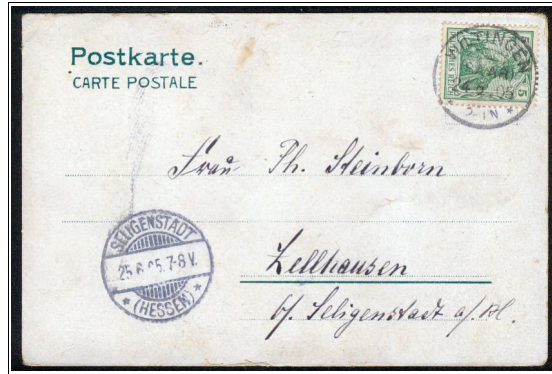 Postkarte.
CARTE POSTALE
5 5
DEUTSCHES REICH
05
Frau Ph. Steinborn
SELIGENSTADT
25.6.05.7-8V.
* (HESSEN) *
Zellhausen
b/. Seligenstadt a/.M.